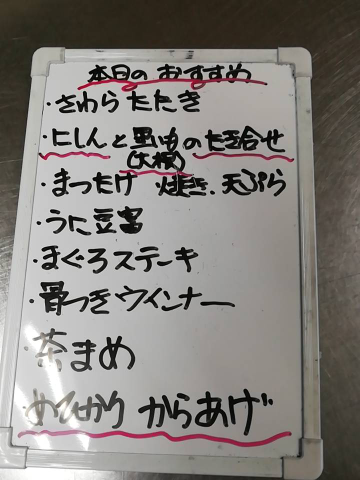 本日のおすすめ
・さわらたたき
・にしんと里いものたき合せ
(大根)
・まつたけ 焼き、天ぷら
・うに豆富
・まぐろステーキ
・骨つきウインナー
・茶まめ
・めひかり からあげ